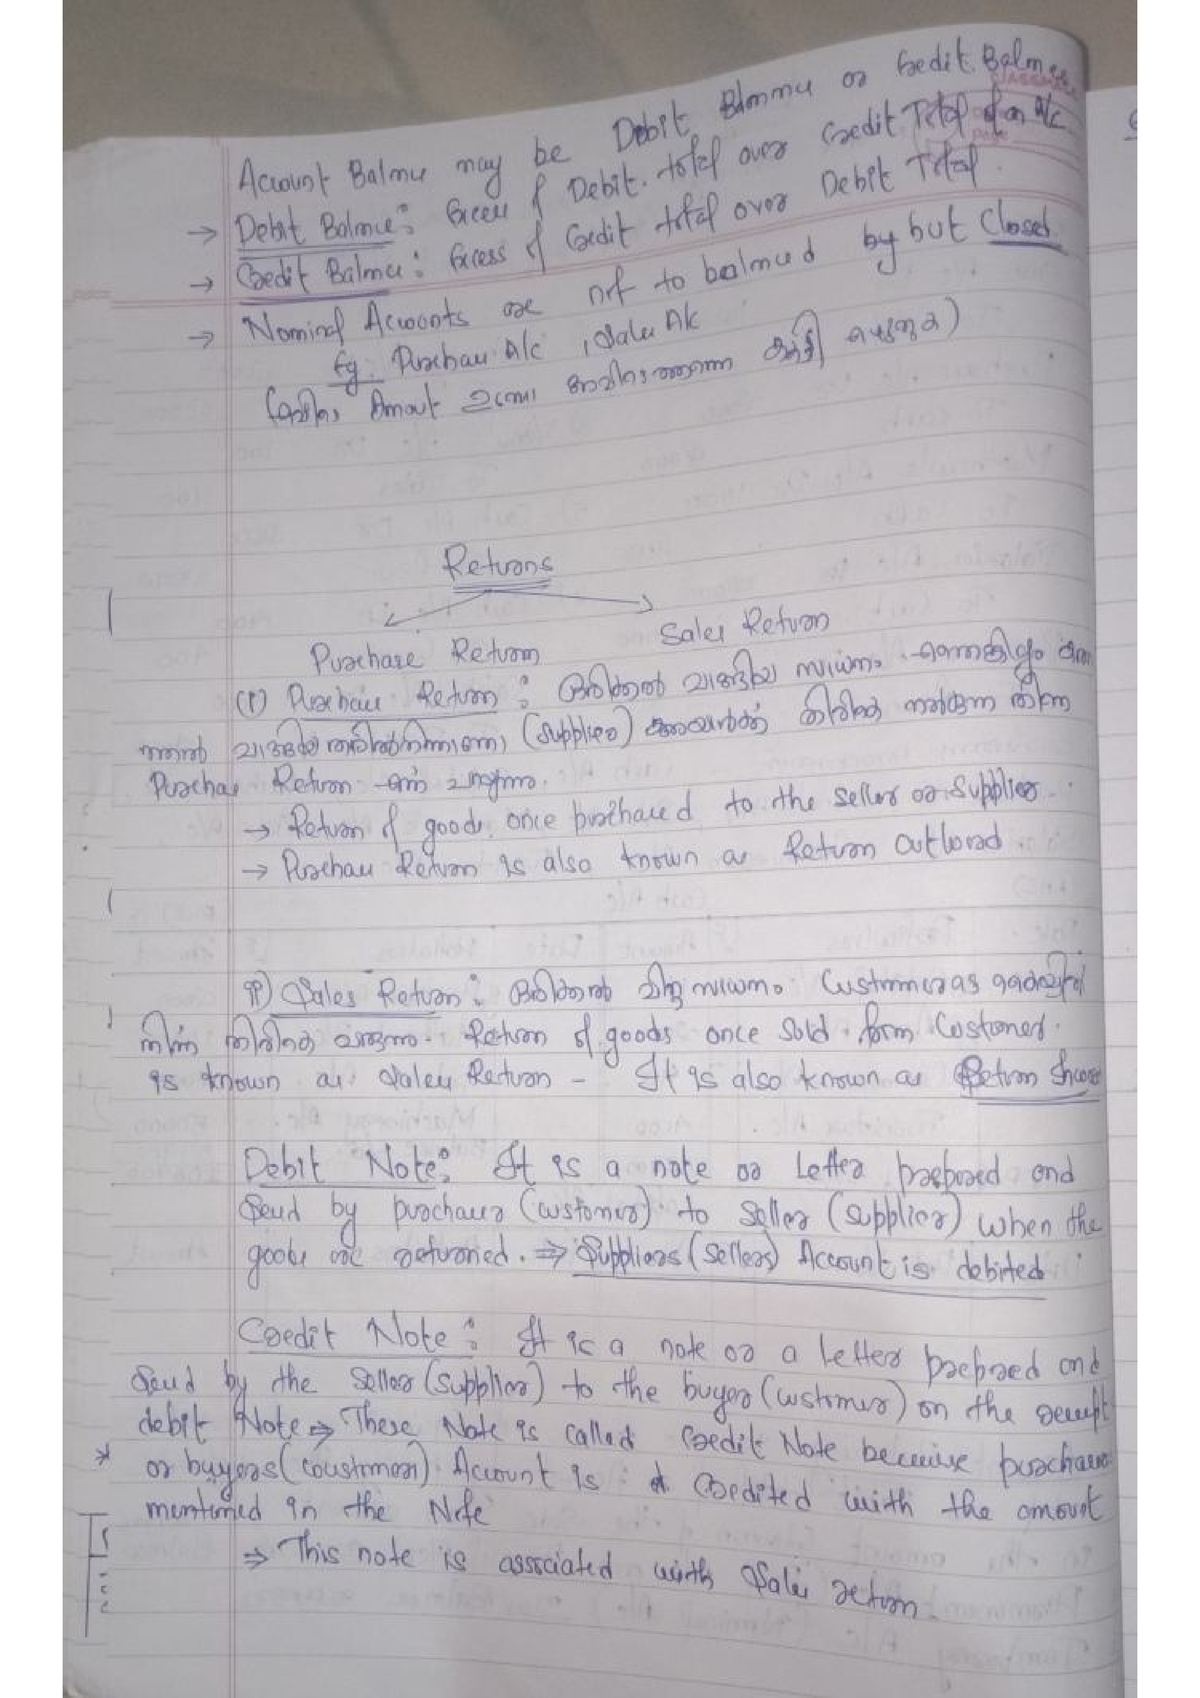 Account Balance may be Debit Balance or Credit Balance
→ Debit Balance: Excess of Debit total over Credit Total of an A/c
→ Credit Balance: Excess of Credit total over Debit Total.
→ Nominal Accounts are not to balanced by but Closed
Eg. Purchase A/c, Sales A/c
Amout
Returns
Purchase Return Sales Return
(1) Purchase Return: ഒരിക്കൽ വാങ്ങിയ സാധനം
(Supplier) തിരികെ നൽകുന്ന
Purchas Return എന്ന് പറയുന്നു.
→ Return of goods once purchased to the seller or Supplier.
→ Purchase Return is also known as Return Outward.
Sales Return: ഒരിക്കൽ വിറ്റ സാധനം Customer
നിന്ന് തിരികെ വരുന്നു. Return of goods once Sold form Customer
is known as Sales Return - It is also known as Return
Debit Note: It is a note or Letter prepared and
Send by purchaser (customer) to Seller (Supplier) when the
goods are returned. ⇒ Suppliers (Sellers) Account is debited
Credit Note: It is a note or a Letter prepared and
Send by the Seller (Supplier) to the buyer (customer) on the receipt
debit Note ⇒ These Note is called Credit Note because purchaser
or buyers (coustmer) Account is Credited with the amount
mentioned in the Note
⇒ This note is associated with Sales return